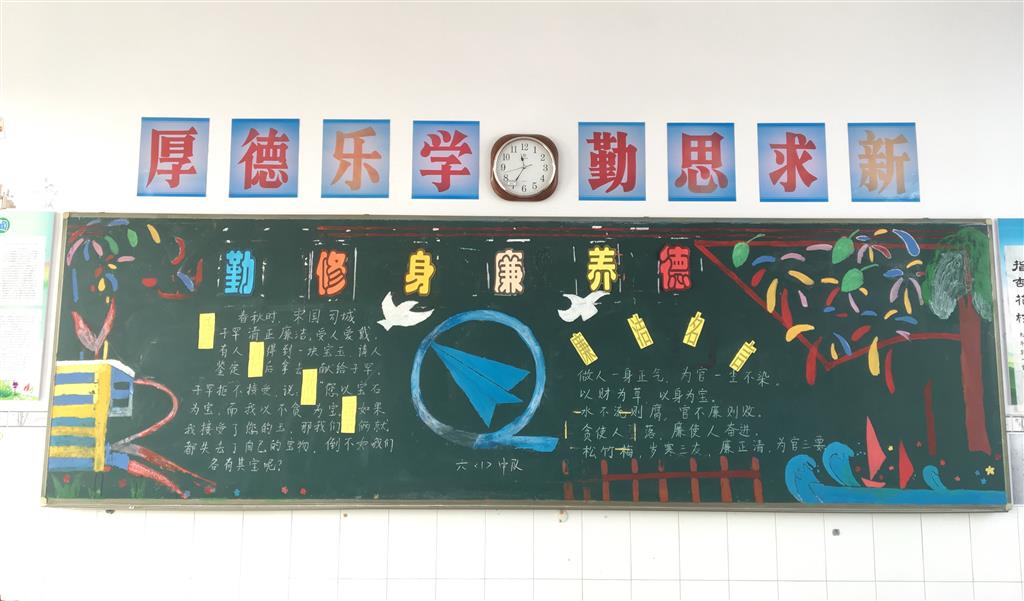 厚德乐学 勤思求新
勤修身廉养德
春秋时，宋国司城
子罕清正廉洁，受人爱戴。
有人得到一块宝玉，请人
鉴定后拿去献给子罕，
子罕拒不接受，说：您以宝石
为宝，而我以不贪为宝。如果
我接受了您的玉，那我们俩就
都失去了自己的宝物，倒不如我们
各有其宝呢？
六（1）中队
廉洁名言
做人一身正气，为官一尘不染。
以财为草，以身为宝。
水不流则腐，官不廉则败。
贪使人堕落，廉使人奋进。
松竹梅，岁寒三友，廉正清，为官三要
12
1
2
3
4
5
6
7
8
9
10
11
指
杏
花
村